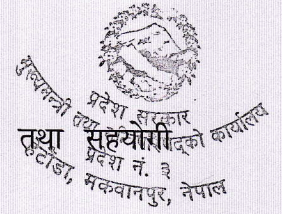 प्रदेश सरकार
मुख्यमन्त्री तथा कार्यालय
तथा सहयोगी
प्रदेश नं. ३
हेटौंडा, मकवानपुर, नेपाल